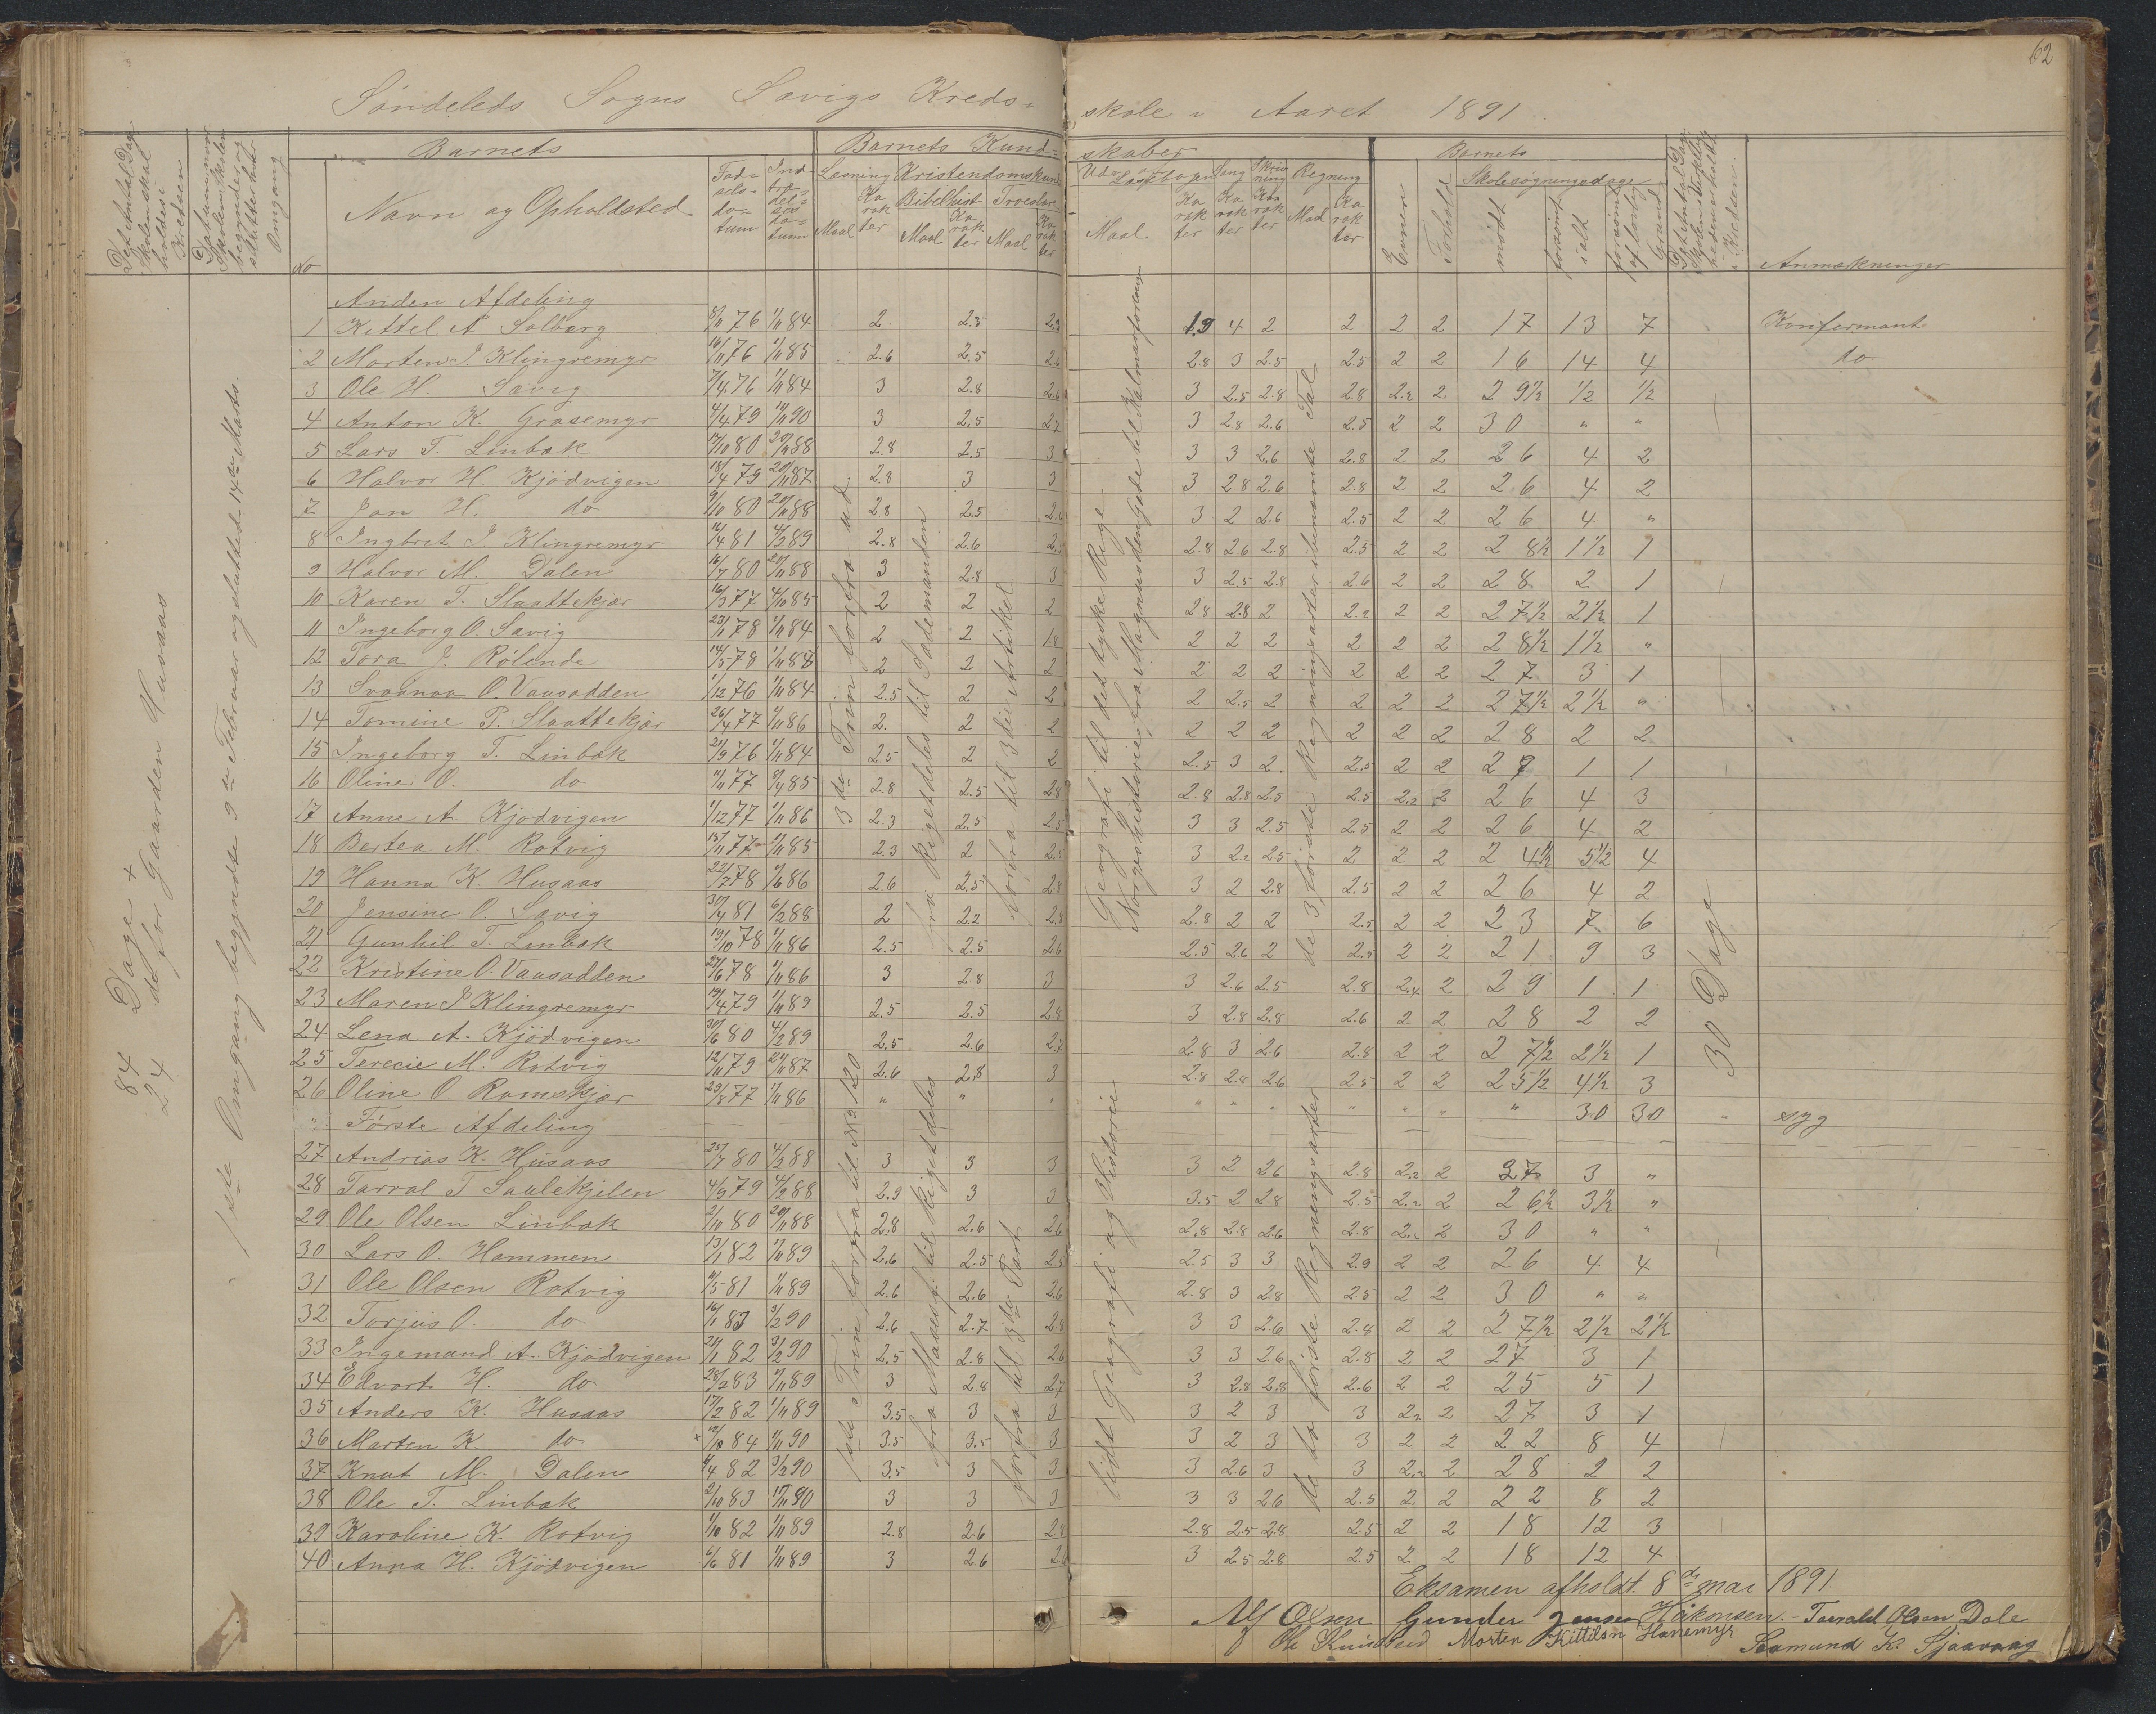 62
Søndeleds Sogns Savigs Kreds-
skole i Aaret 1891
Det Antal Dage Skolen skal holdes i Kredsen
Datum naar Skolen Skolen begynder og slutter hver Omgang
No
Barnets
Navn og Opholdsted
Fød-selsdatum
Indtrædelsesdatum
Barnets Kund-
skaber
Læsning Kristendomskunds
Maal Karakter
Bibelhist Maal Karakter
Troeslære Maal Karakter
Udv. af Læsebogen Maal Karakter
Sang Karakter
Skrivning Karakter
Regning Maal Karakter
Barnets
Evner
Forhold
Skolesøgningsdage
mødt
forsømt ialt
forsømt af lovlig Grund
Det Antal Dage Skolen virkelig heden er holdt i Kredsen
Anmærkninger
84 Dage +
24 do for Gaarden Husaas
1ste Omgang begyndte 9de Februar og slutted 14de Marts.
3de Trin forfra ud
fra Rigets deles til Sædemanden
forfra til 3die Artikel
Geografi til det tyske Rige
Norgeshistorie fra Magnus den Gode til Kalmarforening
de 3 første Regningsarter i benævnte Tal
1ste Trin forfra til No 120
fra Mose til Rigets deles
forfra til 3die Part
lidt Geografi og Historie
de to første Regningsarter
30 Dage
Anden Afdeling
1 Kittel A Solberg 8/11 76 1/11 84 2 2.3 2.3 1.9 4 2 2 2 2 17 13 7 Konfirmant
2 Morten J. Klingremyr 16/11 76 1/11 85 2.6 2.5 2.6 2.8 3 2.5 2.5 2 2 16 14 4 do
3 Ole H. Savig 7/4 76 1/11 84 3 2.8 2.6 3 2.5 2.8 2.8 2.2 2 29½ ½ ½
4 Anton K. Grasemyr 4/4 79 12/11 90 3 2.5 2.7 3 2.8 2.6 2.5 2 2 30 " "
5 Lars T. Linbæk 17/10 80 20/11 88 2.8 2.5 3 3 3 2.6 2.8 2 2 26 4 2
6 Halvor H. Kjødvigen 18/4 79 20/11 87 2.8 3 3 3 2.8 2.6 2.8 2 2 26 4 2
7 Jan H. do 9/10 80 20/11 88 2.8 2.5 2.6 3 2 2.6 2.5 2 2 26 4 "
8 Ingbret J Klingremyr 16/4 81 4/2 89 2.8 2.6 2.8 2.8 2.6 2.8 2.5 2 2 28½ 1½ 1
9 Halvor M. Dalen 16/7 80 20/11 88 3 2.8 3 3 2.5 2.8 2.6 2 2 28 2 1
10 Karen T. Slaattekjær 16/3 77 4/10 85 2 2 2 2.8 2.8 2 2.2 2 2 27½ 2½ 1
11 Ingeborg O. Savig 23/1 78 1/11 84 2 2 1.8 2 2 2 2 2 2 28½ 1½ "
12 Tora J. Rølende 14/5 78 1/11 87 2 2 2 2 2 2 2 2 2 27 3 1
13 Svaanaa O. Vaasadden 1/12 76 1/11 84 2.5 2 2 2 2.5 2 2 2 2 27½ 2½ "
14 Tomine P. Slaattekjær 26/4 77 1/11 86 2 2 2 2 2 2 2 2 2 28 2 2
15 Ingeborg T. Linbæk 21/9 76 1/11 84 2.5 2 2 2.5 3 2 2.5 2 2 29 1 1
16 Oline O. do 11/11 77 9/4 85 2.8 2.5 2.8 2.8 2.8 2.5 2.5 2.2 2 26 4 3
17 Anne A. Kjødvigen 1/12 77 1/11 86 2.3 2.5 2.5 3 3 2.5 2.5 2 2 26 4 2
18 Bertea M. Rotvig 15/11 77 1/11 85 2.3 2 2.5 3 2.2 2.5 2 2 2 24½ 5½ 4
19 Hanna K. Husaas 22/7 78 9/6 86 2.6 2.5 2.8 3 2 2.8 2.5 2 2 26 4 2
20 Jensine O. Savig 30/4 81 6/2 88 2 2.2 2.8 2.8 2 2 2.5 2 2 23 7 6
21 Gunhil T. Linbæk 19/10 78 1/11 86 2.5 2.5 2.6 2.5 2.6 2 2.5 2 2 21 9 3
22 Kristine O. Vaasadden 27/6 78 1/11 86 3 2.8 3 3 2.6 2.5 2.8 2.4 2 29 1 1
23 Maren J Klingremyr 19/4 79 1/11 89 2.5 2.5 2.8 3 2.8 2.8 2.6 2 2 28 2 2
24 Lena A. Kjødvigen 30/6 80 4/2 89 2.5 2.6 2.7 2.8 3 2.6 2.8 2 2 27½ 2½ 1
25 Terecie M. Rotvig 12/11 79 21/11 87 2.6 2.8 3 2.8 2.8 2.6 2.5 2 2 25½ 4½ 3
26 Oline O. Ramskjær 29/8 77 1/11 86 " " " " " " " " " " 30 30 syg
Første Afdeling
27 Andrias K. Husaas 25/7 80 4/2 88 3 3 3 3 2 2.6 2.8 2.2 2 27 3 "
28 Tarral T Saulekjilen 4/9 79 4/2 88 2.9 3 3 3.5 2 2.8 2.5 2.2 2 26½ 3½ "
29 Ole Olsen Linbæk 2/10 80 20/11 88 2.8 2.6 2.6 2.8 2.8 2.6 2.8 2.2 2 30 " "
30 Lars O. Hammen 13/1 82 1/11 89 2.6 2.5 2.5 2.5 3 3 2.9 2 2 26 4 4
31 Ole Olsen Rotvig 11/5 81 1/11 89 2.6 2.6 2.6 2.8 3 2.8 2.5 2 2 30 " "
32 Torjus O. do 16/1 83 3/2 90 2.6 2.7 2.8 3 3 2.6 2.8 2 2 27½ 2½ 2½
33 Ingemand A. Kjødvigen 21/1 82 3/2 90 2.5 2.8 2.6 3 3 2.6 2.8 2 2 27 3 1
34 Edvart H. do 28/2 83 9/11 89 3 2.8 2.7 3 2.8 2.8 2.6 2 2 25 5 1
35 Anders K. Husaas 17/2 82 1/11 89 3.5 3 3 3 2 3 3 2.2 2 27 3 1
36 Marten K. do 12/10 84 1/11 90 3.5 3.5 3 3 2 3 3 2 2 22 8 4
37 Knut M. Dalen 9/4 82 3/2 90 3.5 3 3 3 2.6 3 3 2.2 2 28 2 2
38 Ole T. Linbæk 2/10 83 17/11 90 3 3 3 3 3 2.6 2.5 2 2 22 8 2
39 Karoline K. Rotvig 1/10 82 1/11 89 2.8 2.6 2.8 2.8 2.5 2.8 2.5 2 2 18 12 3
40 Anna H. Kjødvigen 6/6 81 1/11 89 3 2.6 2.6 3 2.5 2.8 2.5 2 2 18 12 4
Eksamen afholdt 8de mai 1891.
Alf Olsen Gunder Jensen Håkonsen. - Tarrald Olsen Dale
Ole Morten Kittilsn Hanemyr Saamund K. Sjaavaag